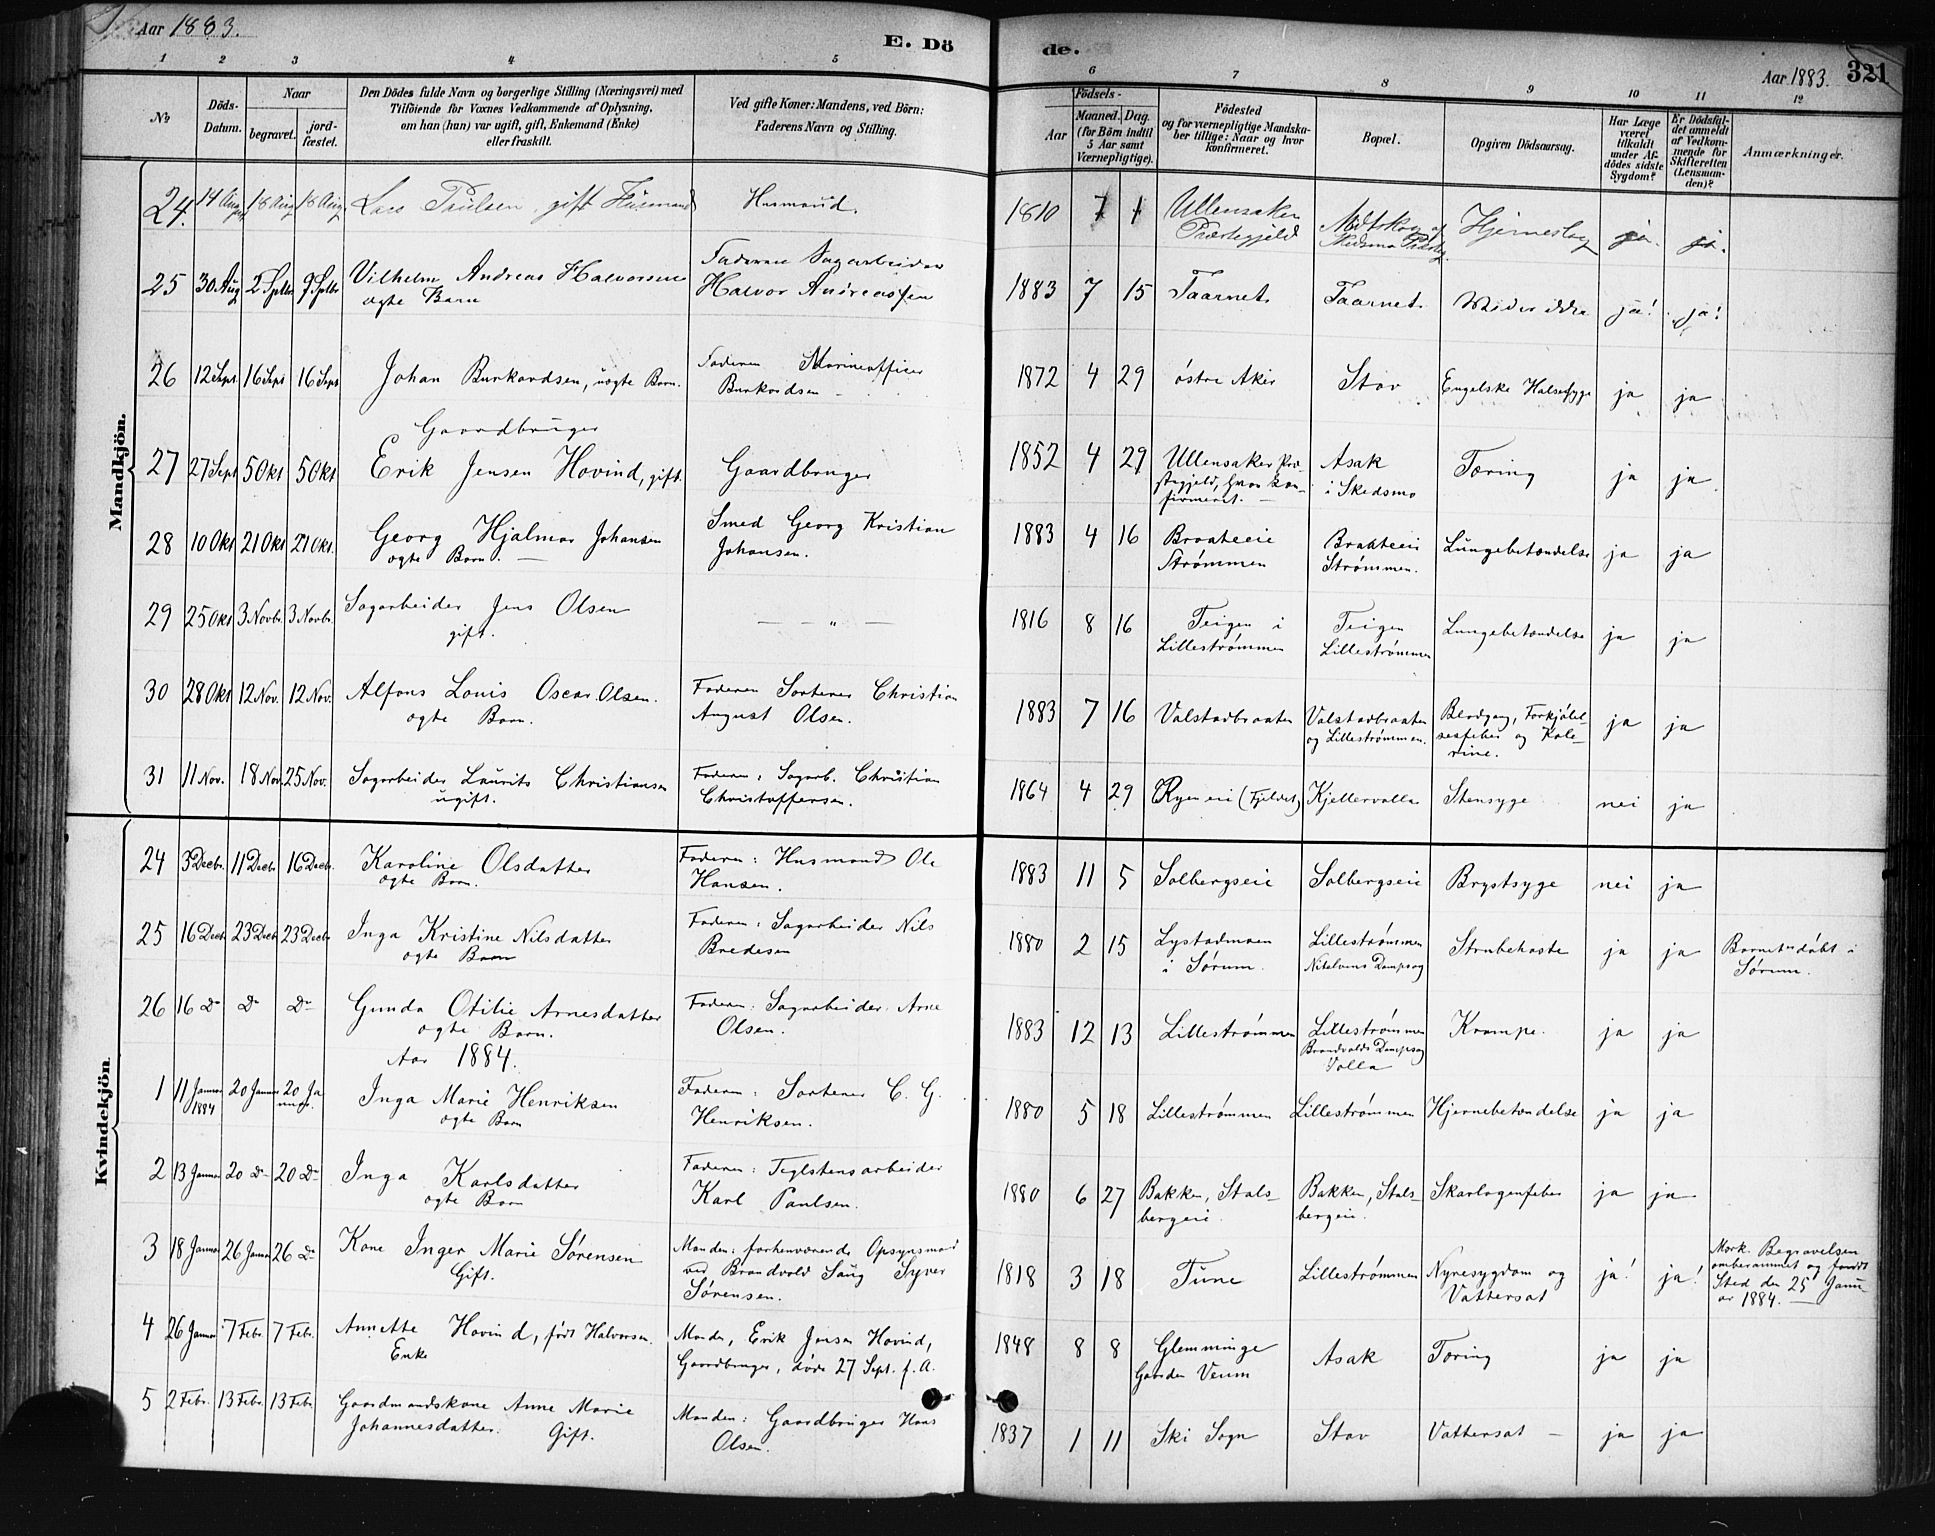 Aar 1883.
E. Dö
de.
Aar 1883.
321
1 2 3 4 5 6 7 8 9 10 11 12
No
Döds-Datum.
Naar
begravet.
jord-fæstet.
Den Dödes fulde Navn og borgerlige Stilling (Næringsvei) med
Tilföiende for Voxnes Vedkommende af Oplysning,
om han (hun) var ugift, gift, Enkemand (Enke)
eller fraskilt.
Ved gifte Koner: Mandens, ved Börn:
Faderens Navn og Stilling.
Födsels-
Aar
Maaned. Dag.
(for Börn indtil
5 Aar samt
Værnepligtige).
Födested
og for værnepligtige Mandska-
ber tillige: Naar og hvor
konfirmeret.
Bopæl.
Opgiven Dödsaarsag.
Har Læge
været
tilkaldt
under Af-
dödes sidste
Sygdom?
Er Dödsfal-
det anmeldt
af Vedkom-
mende for
Skifteretten
(Lensman-
den)?
Anmærkninger.
Mandkjön.
24. 14 Aug 18 Aug 18 Aug Lars Paulsen, gift Husmand Husmand. 1810 7 1 Ullensaker Præstegjeld Hjerneslag ja. ja.
25 30 Aug 2 Sptbr 9 Sptbr Vilhelm Andreas Halvorsen ægte Barn Faderen Sagarbeider Halvor Andreassen 1883 7 15 Taarnet Taarnet ja! ja!
26 12 Sept. 16 Sept 16 Sept Johan Burkardsen, uægte Barn. Faderen Marineofficer Burkardsen 1872 4 29 østre Aker Stav Engelske Halsesyge ja ja
Gaardbruger
27 27 Sept 5 Okt 5 Okt Erik Jensen Hovind, gift. Gaardbruger 1852 4 29 Ullensaker Præstegjeld, hvor konfirmeret. Asak i Skedsmo Tæring ja ja.
28 10 Okt 21 Okt 21 Okt. Georg Hjalmar Johansen ægte Barn. Smed Georg Kristian Johansen. 1883 4 16 Braateeie Strømmen Braateeie Strømmen. Lungebetændelse ja ja
29 25 Okt 3 Novbr. 3 Novbr. Sagarbeider Jens Olsen gift. — „ — 1816 8 16 Teigen i Lillestrømmen Teigen Lillestrømmen Lungebetændelse ja ja
30 28 Okt 12 Nov. 12 Nov. Alfons Louis Oscar Olsen. ægte Barn. Faderen Sorterer Christian August Olsen. 1883 7 16 Valstadbraaten Valstadbraaten og Lillestrømmen. Blodgang, Forkjølelsesfeber og Kolerine. ja ja
31 11 Nov. 18 Nov. 25 Nov. Sagarbeider Laurits Christiansen ugift. Faderen: Sagarb. Christian Christoffersen. 1864 4 29 Ryen eie (Fjeldet) Kjellervolla Stensyge nei ja
Kvindekjön
24 3 Decbr. 11 Decbr 16 Decbr. Karoline Olsdatter ægte Barn. Faderen: Husmand Ole Hansen. 1883 11 5 Solbergseie Solbergseie Brystsyge nei ja
25 16 Decbr 23 Decbr 23 Decbr Inga Kristine Nilsdatter ægte Barn Faderen: Sagarbeider Nils Bredesen 1880 2 15 Lystadmoen i Sørum. Lillestrømmen Nitelvens Dampsag Strubehoste ja ja Barnet døbt i Sørum.
26 16 Do Do Do Gunda Otilie Arnesdatter ægte Barn. Faderen: Sagarbeider Arne Olsen. 1883 12 13 Lillestrømmen Lillestrømmen Brandvolds Dampsag Volla Krampe. ja ja
Aar 1884.
1 11 Januar 1884 20 Januar 20 Januar. Inga Marie Henriksen ægte Barn Faderen: Sorterer C. G. Henriksen. 1880 5 18 Lillestrømmen Lillestrømmen Hjernebetændelse ja ja
2 13 Januar 20 Do 20 Do Inga Karlsdatter ægte Barn Faderen: Teglstensarbeider Karl Paulsen. 1880 6 27 Bakken, Stalsbergeie. Bakken, Stalsbergeie. Skarlagensfeber ja ja
3 18 Januar 26 Januar 26 Do Kone Inger Marie Sørensen Gift. Manden: forhenværende Opsynsmand ved Brandvold Saug Syver Sørensen. 1818 3 18 Tune Lillestrømmen Nyresygdom og Vattersot ja! ja! Mærk. Begravelsen omberammet og fandt Sted den 25 Januar 1884. —
4 26 Januar 7 Febr. 7 Febr. Annette Hovind, født Halvorsen. Enke Manden, Erik Jensen Hovind, Gaardbruger, døde 27 Sept. f. A. 1848 8 8 Glemminge Gaarden Veum Asak Tæring ja ja
5 2 Febr. 13 Febr. 13 Febr. Gaardmandskone Anne Marie Johannesdatter. Gift. Manden: Gaardbruger Hans Olsen. 1837 1 11 Ski Sogn Stav Vattersot — ja ja